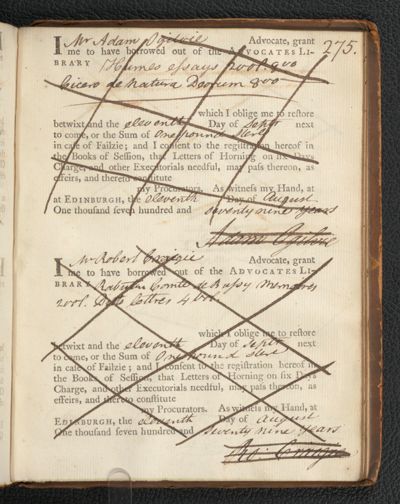 275.
I Mr Adam Ogilvie Advocate, grant
me to have borrowed out of the ADVOCATES LI-
BRARY Humes essays 2 vol. 8vo
Cicero de Natura Deorum 8vo
which I oblige me to reſtore
betwixt and the eleventh Day of Septr next
to come, or the Sum of One pound sterl
in caſe of Failzie; and I conſent to the regiſtration hereof in
the Books of Seſſion, that Letters of Horning on ſix Days
Charge, and other Executorials needful, may paſs thereon, as
effeirs, and thereto conſtitute
my Procurators. As witneſs my Hand, at
at EDINBURGH, the eleventh Day of August
One thouſand ſeven hundred and seventy nine years
Adam Ogilvie
I Mr Robert Craigie Advocate, grant
me to have borrowed out of the ADVOCATES LI-
BRARY Rabutin Comte de Bussy Memoires
2 vol. Do Lettres 4 vol.
which I oblige me to reſtore
betwixt and the eleventh Day of Septr next
to come, or the Sum of One pound sterl
in caſe of Failzie; and I conſent to the regiſtration hereof in
the Books of Seſſion, that Letters of Horning on ſix Days
Charge, and other Executorials needful, may paſs thereon, as
effeirs, and thereto conſtitute
my Procurators. As witneſs my Hand, at
EDINBURGH, the eleventh Day of August
One thouſand ſeven hundred and seventy nine years
Ro: Craigie